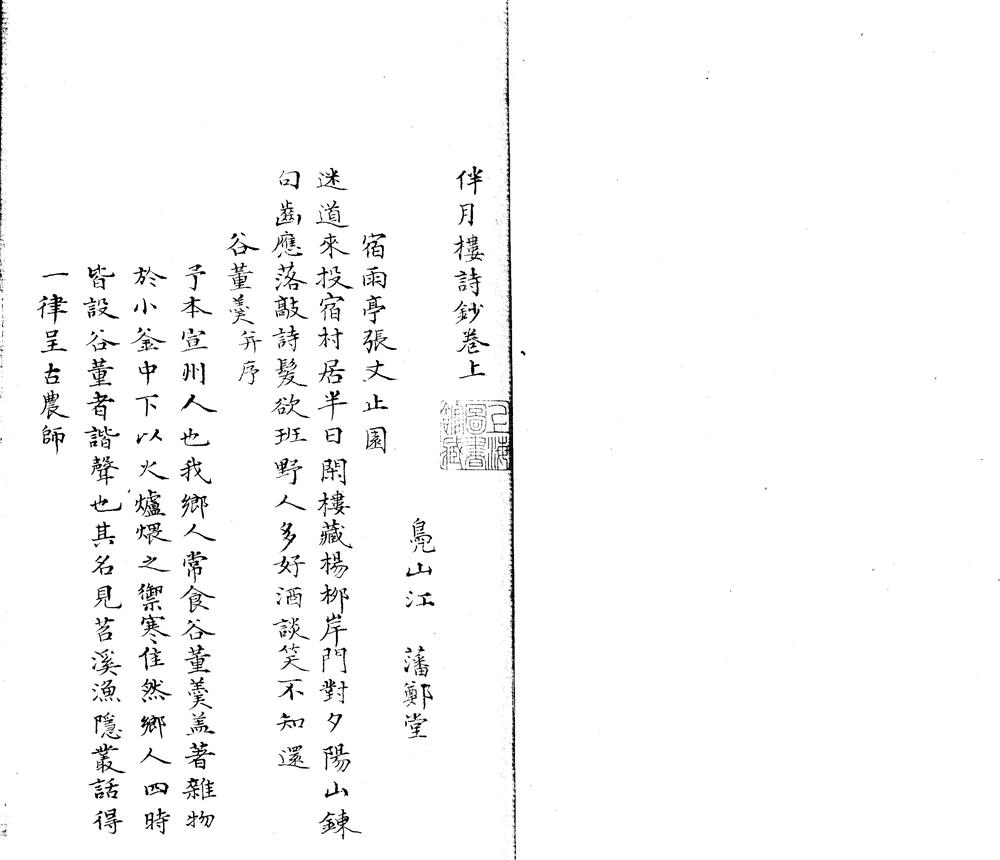 伴月樓詩鈔卷上
上海圖書館藏
鳧山江　藩鄭堂
宿雨亭張丈止園
迷道來投宿村居半日閑樓藏楊柳岸門對夕陽山鍊
句齒應落敲詩髮欲班野人多好酒談笑不知還
谷董羹并序
予本宣州人也我鄉人常食谷董羹盖著雜物
於小釜中下以火爐煨之禦寒佳然鄉人四時
皆設谷董者諧聲也其名見苕溪漁隱叢話得
一律呈古農師